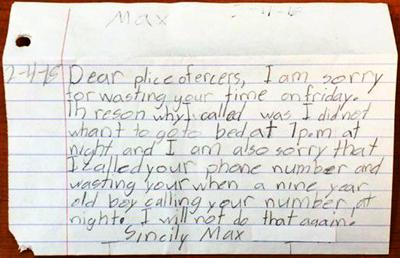 Max
2-4-15 Dear plice ofercers, I am sorry
for wasting your time on friday.
Th reson why I called was I did not
whant to go to bed at 7p.m at
night and I am also sorry that
I called your phone number and
wasting your when a nine year
old boy calling your number at
night. I will not do that again.
Sincily Max